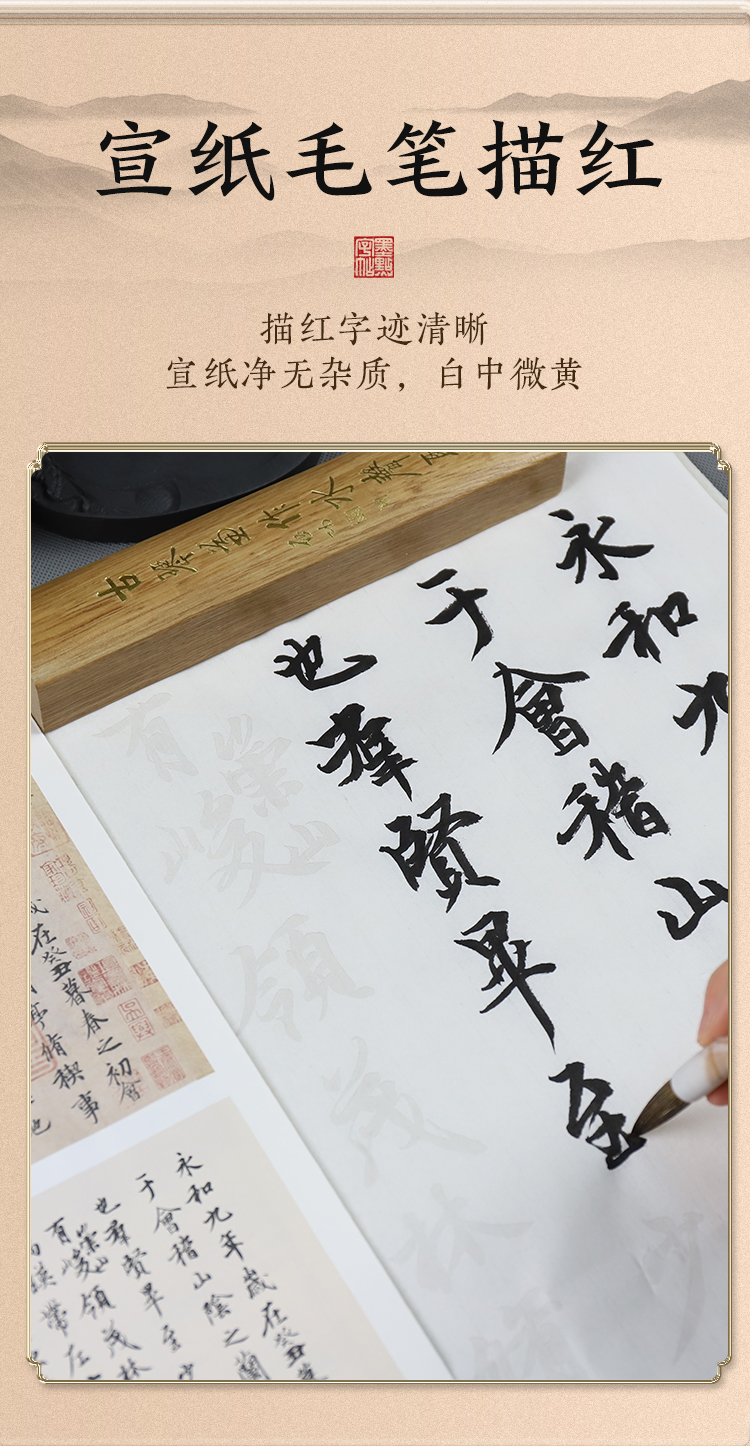 宣纸毛笔描红
墨點
字帖
描红字迹清晰
宣纸净无杂质，白中微黄
永和九
于會稽山
也羣賢畢至
有崇山
峻領茂林脩
少
在癸丑暮春之初會
亭脩稧事
也
永和九年歲在癸丑
于會稽山陰之蘭
也羣賢畢至少
有崇山峻領茂林
帶左